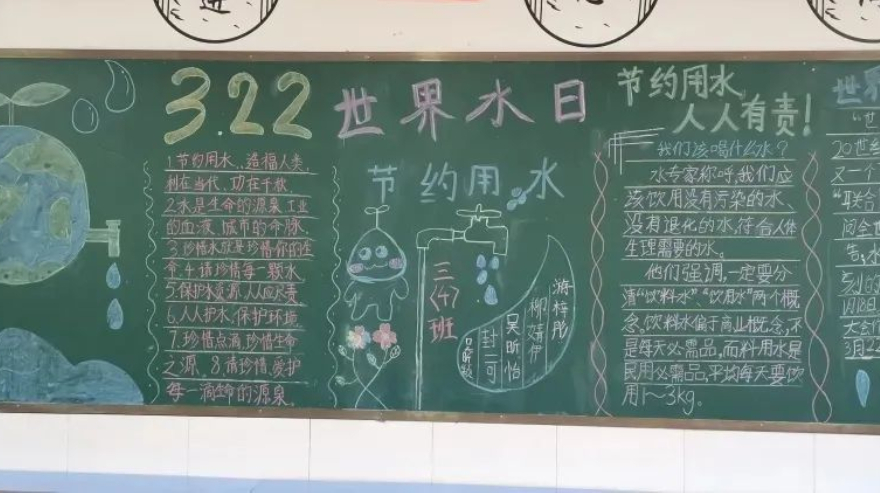 3.22
世界水日
节约用水
1.节约用水、造福人类,
利在当代、功在千秋
2.水是生命的源泉 工业
的血液 城市的命脉
3.珍惜水就是珍惜你的生
命 4.请珍惜每一颗水
5.保护水资源 人人应尽责
6.人人护水 保护环境
7.珍惜点滴 珍惜生命
之源 8.请珍惜、爱护
每一滴生命的源泉
三
(4)
班
游梓彤
柳婧伊
吴昕怡
封二可
节约用水,
人人有责!
我们该喝什么水?
水专家称呼,我们应
该饮用没有污染的水、
没有退化的水,符合人体
生理需要的水。
他们强调,一定要分
清“饮料水”、“饮用水”两个概
念。饮料水偏于商业概念,不
是每天必需品,而料用水是
民用必需品,平均每天要饮
用1～3kg。
世界
“世
20世纪
又一个
“联合
问会
告:水
刻的
月18日
大会
3月22